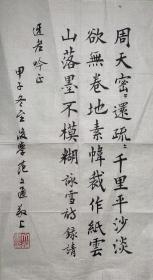 周天密〻還疏〻千里平沙淡
欲無卷地素幃裁作紙雲
山落墨不模糊詠雪詩錄請
君吟正
甲子冬至後學范上通敬上